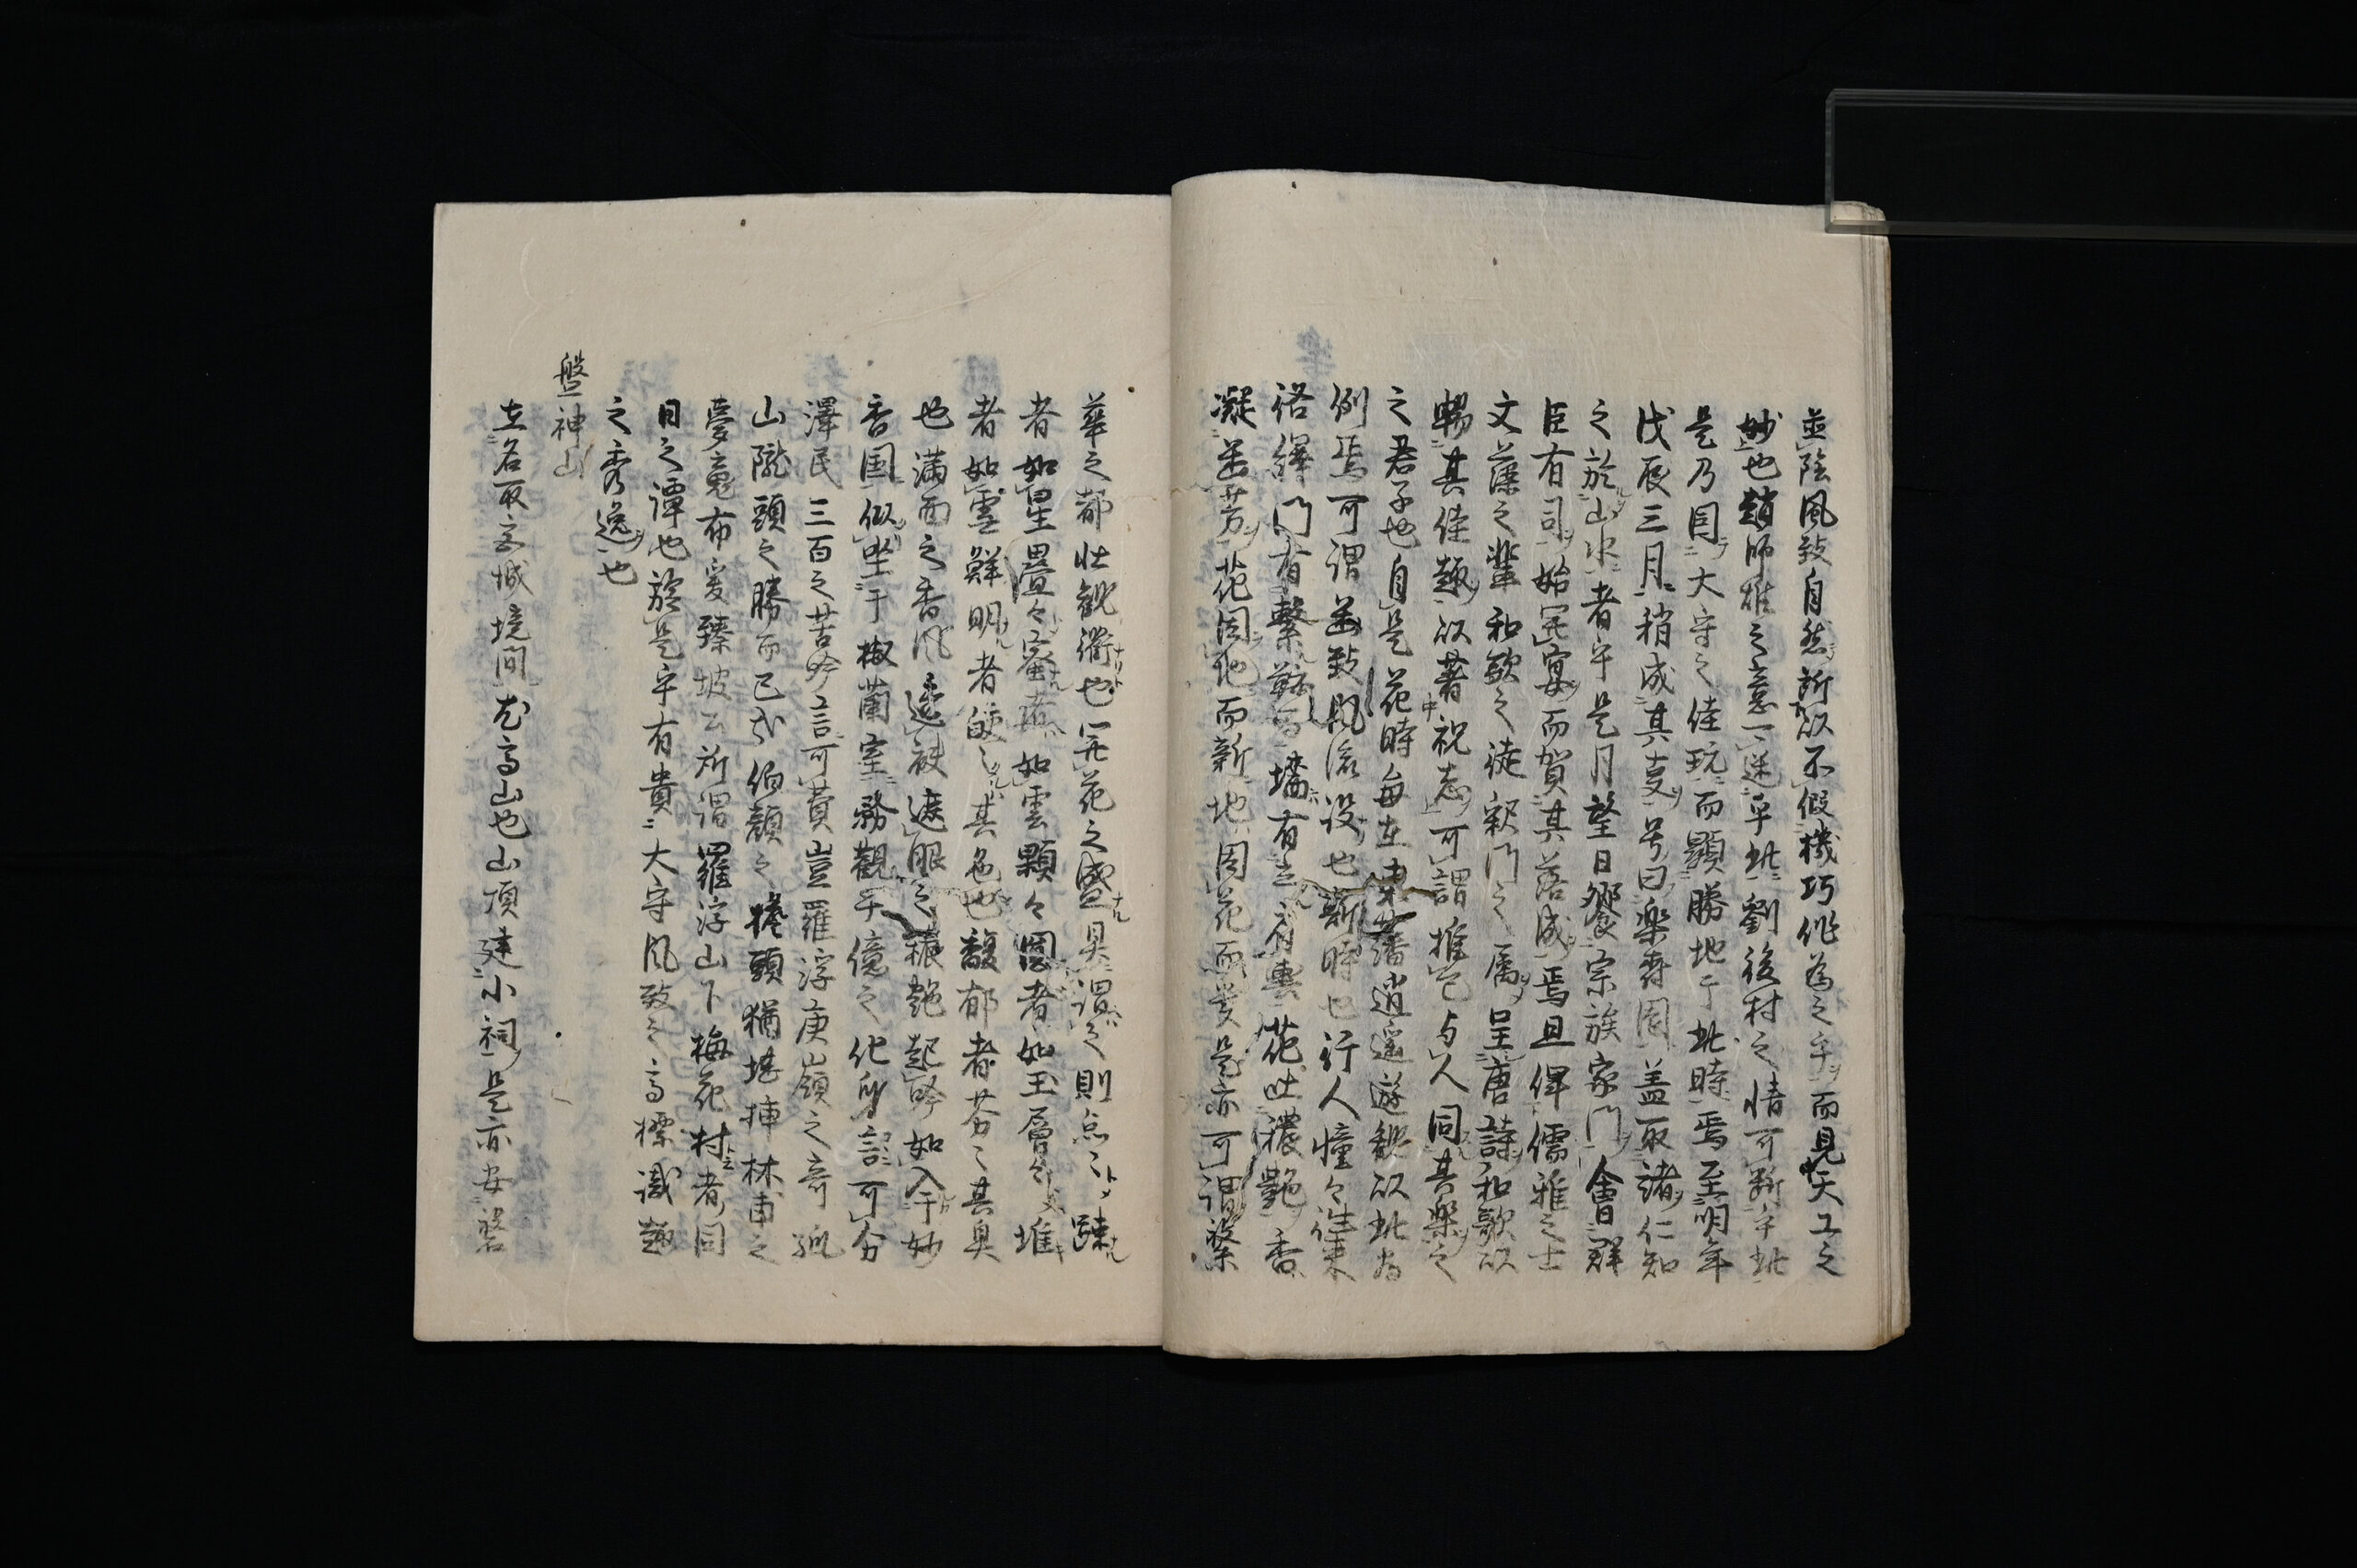 並陰風致自然所以不假機巧作為之手而見天工之
妙也趙師雄之意一迷乎此劉後村之情可斷乎此
是乃因大守之佳玩而顕勝地于此時焉至明年
戊辰三月稍成其臺号曰楽寿園蓋取諸仁知
之於山水者乎是月望日饗宗族家門會群
臣有司始開宴而賀其落成焉且俾儒雅之士
文藻之輩和歌之徒釈門之属呈唐詩和歌以
暢其佳趣以著祝志可謂推己与人同其楽之
之君子也自是花時毎在東藩逍遥遊観以此為
例焉可謂其致風流設也斯時也行人憧々往来
絡繹門有繋鞍馬墻有立肩輿花吐穠艶香
凝芳花因地而新地因花而美是亦可謂
華之都壮観衢也開花之盛具謂之則点々疎
者如星畳々密者如雲顆々圓者如玉層々堆
者如雪鮮明者皎々其色也馥郁者芬々其臭
也満面之香風遶袂遮眼之穠艶起吟如入于妙
香国似坐于椒蘭室務観千億之化身認可分
澤民三百之苦吟言可費豈羅浮庾嶺之奇孤
山隴頭之勝而已哉伯顔之擔頭猶堪挿林甫之
夢寬布爰臻坡公所謂羅浮山下梅花村者同
日之譚也於是乎有貴大守風致之高標識趣
之秀逸也
盤神山
在名取宮城境間尤高山也山頂建小祠是亦安盤